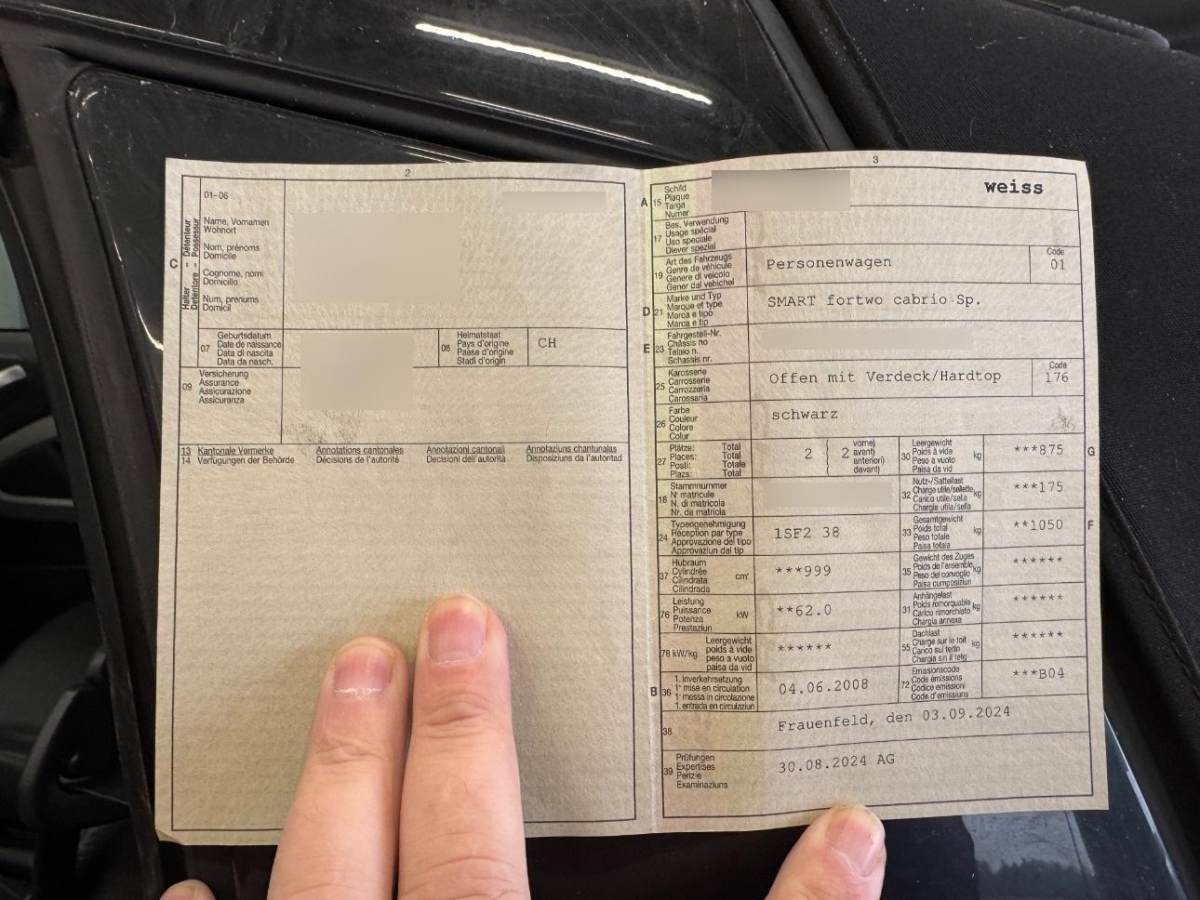 2
01-06
Name, Vornamen
Wohnort
Nom, prénoms
Domicile
Cognome, nomi
Domicilio
Num, prenums
Domicil
C
Halter - Détenteur
Detentore - Possessur
07
Geburtsdatum
Date de naissance
Data di nascita
Data da nasch.
08
Heimatstaat
Pays d'origine
Paese d'origine
Stadi d'origin
CH
09
Versicherung
Assurance
Assicurazione
Assicuranza
13 Kantonale Vermerke Annotations cantonales Annotazioni cantonali Annotaziuns chantunalas
14 Verfügungen der Behörde Décisions de l'autorité Decisioni dell'autorità Disposiziuns da l'autoritad
3
A 15
Schild
Plaque
Targa
Numer
weiss
17
Bes. Verwendung
Usage spécial
Uso speciale
Diever spezial
19
Art des Fahrzeugs
Genre de véhicule
Genere di veicolo
Gener dal vehichel
Personenwagen
Code
01
D 21
Marke und Typ
Marque et type
Marca e tipo
Marca e tip
SMART fortwo cabrio Sp.
E 23
Fahrgestell-Nr.
Châssis no
Telaio n.
Schassis nr.
25
Karosserie
Carrosserie
Carrozzeria
Carossaria
Offen mit Verdeck/Hardtop
Code
176
26
Farbe
Couleur
Colore
Colur
schwarz
27
Plätze: Total
Places: Total
Posti: Totale
Plazs: Total
2
2
vorne)
avant)
anteriori)
davant)
30
Leergewicht
Poids à vide
Peso a vuoto
Paisa da vid
kg
***875
G
18
Stammnummer
N° matricule
N. di matricola
Nr. da matricla
32
Nutz-/Sattellast
Charge utile/sellette
Carico utile/sella
Chargia utile/sella
kg
***175
24
Typengenehmigung
Réception par type
Approvazione del tipo
Approvaziun dal tip
1SF2 38
33
Gesamtgewicht
Poids total
Peso totale
Paisa totala
kg
**1050
F
37
Hubraum
Cylindrée
Cilindrata
Cilindrada
cm³
***999
35
Gewicht des Zuges
Poids de l'ensemble
Peso del convoglio
Paisa cumposiziun
kg
******
76
Leistung
Puissance
Potenza
Prestaziun
kW
**62.0
31
Anhängelast
Poids remorquable
Carico rimorchiato
Chargia annexa
kg
******
78 kW/kg
Leergewicht
poids à vide
peso a vuoto
paisa da vid
******
55
Dachlast
Charge sur le toit
Carico sul tetto
Chargia sin il tetg
kg
******
B 36
1. Inverkehrsetzung
1re mise en circulation
1a messa in circolazione
1. entrada en circulaziun
04.06.2008
72
Emissionscode
Code émissions
Codice emissioni
Code d'emissiuns
***B04
38
Frauenfeld, den 03.09.2024
39
Prüfungen
Expertises
Perizie
Examinaziuns
30.08.2024 AG